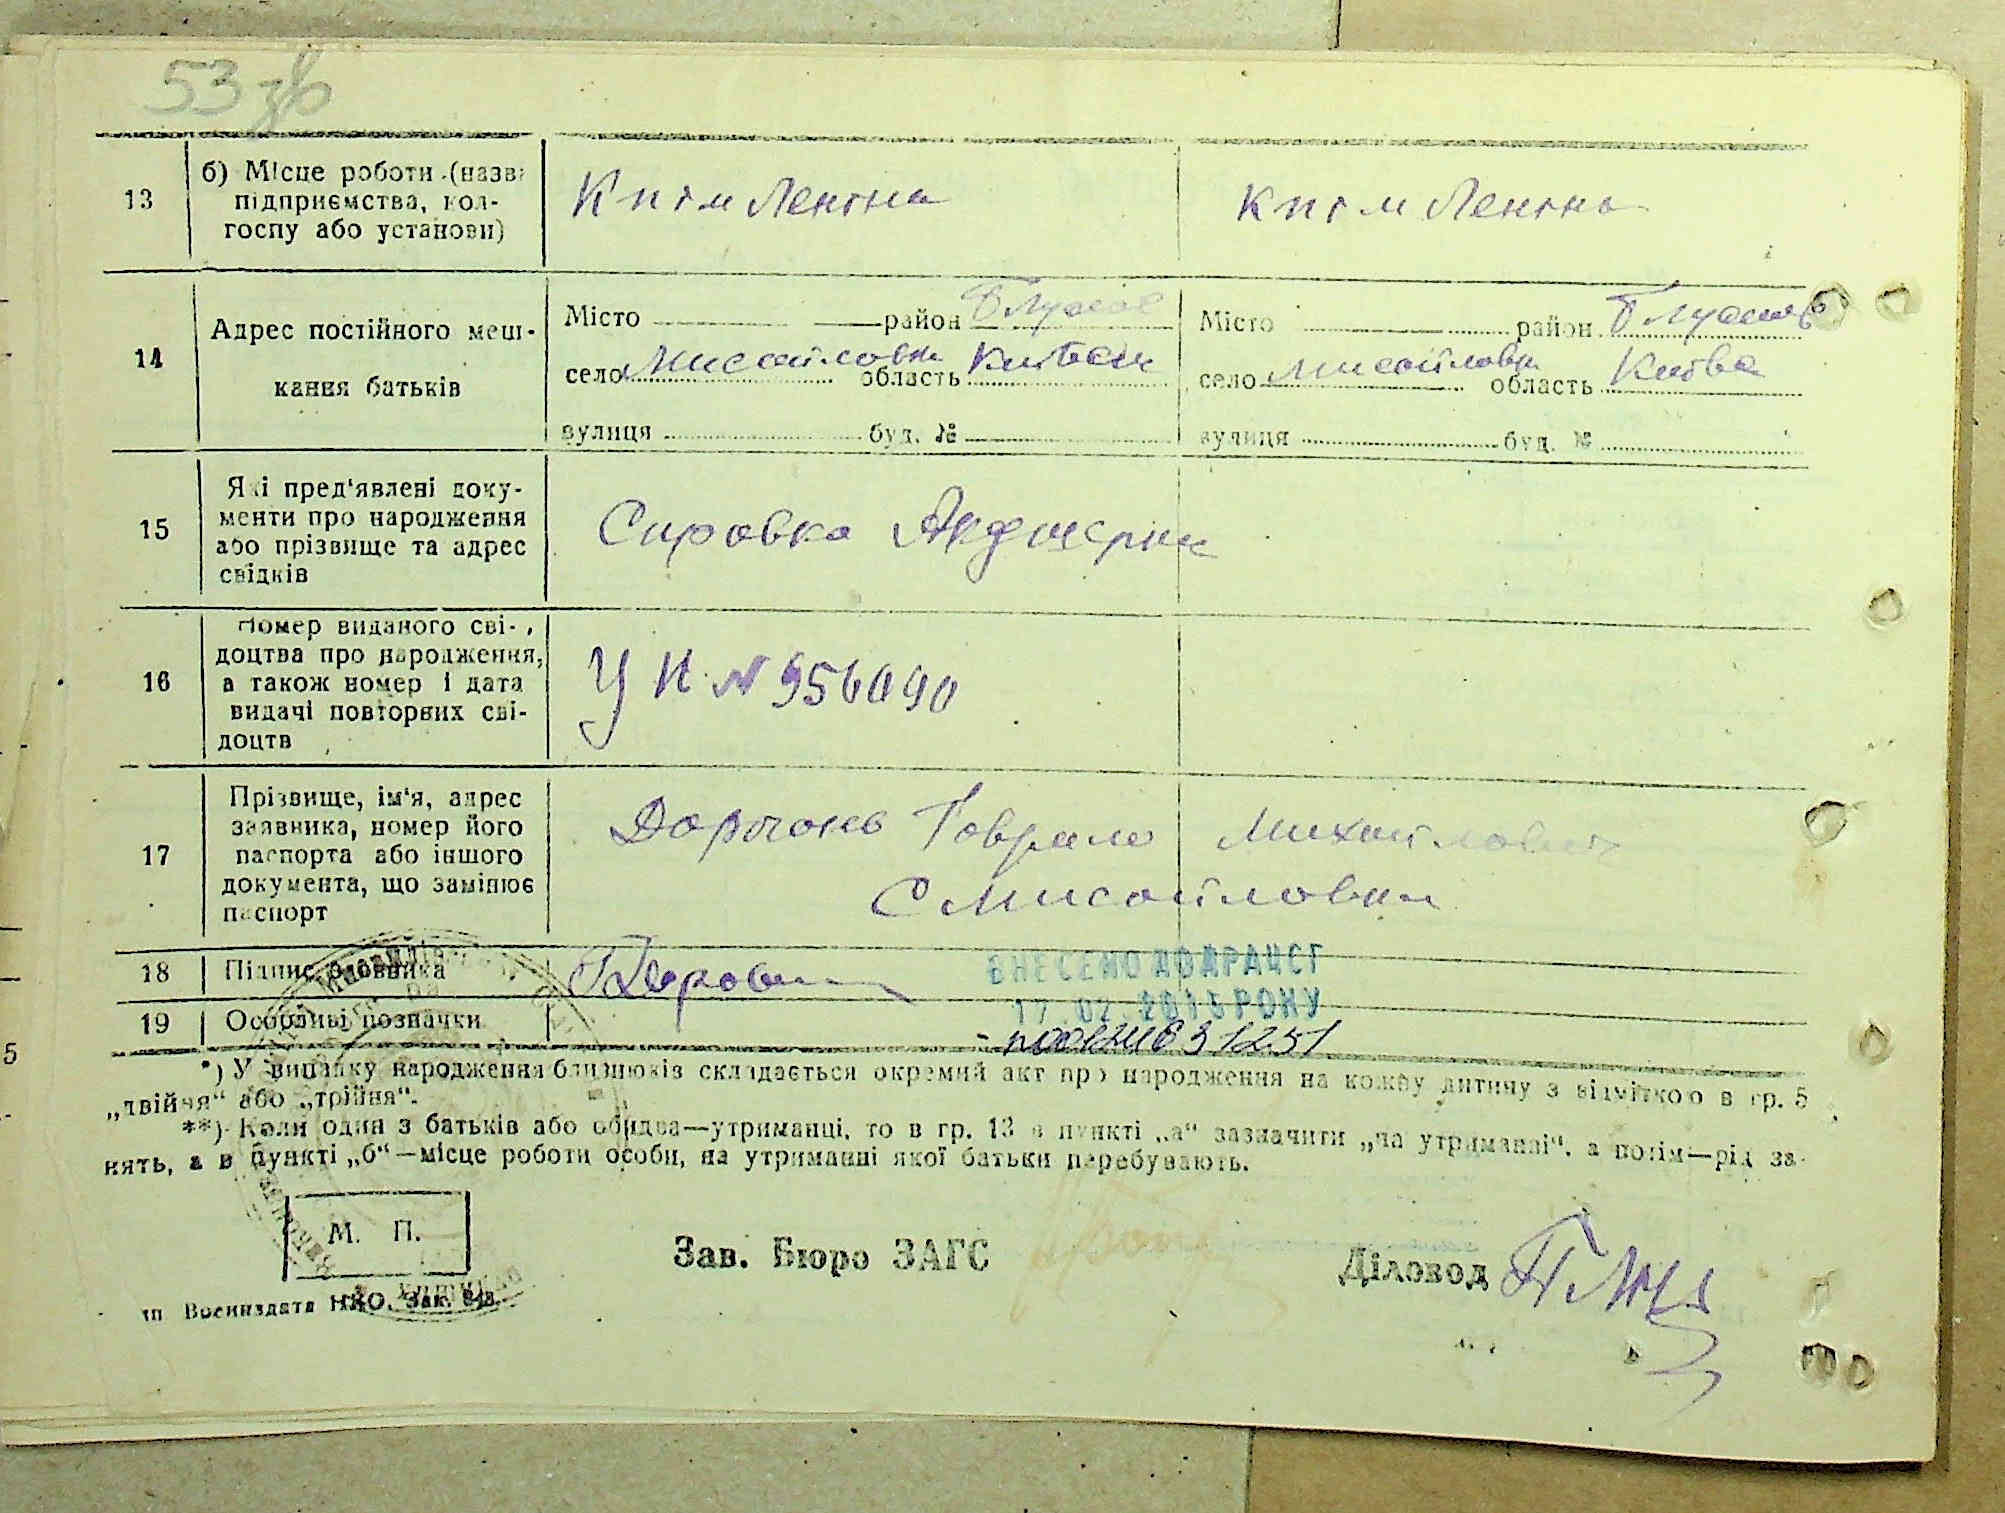 53 зв
13
б) Місце роботи (назва
підприємства, кол-
госпу або установи)
К-п ім Леніна
К-п ім Леніна
14
Адрес постійного меш-
кання батьків
Місто район
село Мисайловки область Київськ
вулиця буд. №
Місто район
село Мисайловки область Київсь
вулиця буд. №
15
Які пред'явлені доку-
менти про народження
або прізвище та адрес
свідків
Справка Акушерки
16
Номер виданого сві-
доцтва про народження,
а також номер і дата
видачі повторних сві-
доцтв
УК №956090
17
Прізвище, ім'я, адрес
заявника, номер його
паспорта або іншого
документа, що замінює
паспорт
Гаврило Михайлович
С Мисайловки
18 Підпис заявника
19 Особливі позначки
ВНЕСЕНО ДО ДРАЦСГ
17.02.2015 РОКУ
*) У випадку народження близнюків складається окремий акт про народження на кожну дитину з відміткою в гр. 5
„двійня“ або „трійня“.
**) Коли один з батьків або обидва—утриманці, то в гр. 13 в пункті „а“ зазначити „на утриманні“, а потім—рід за-
нять, а в пункті „б“—місце роботи особи, на утриманні якої батьки перебувають.
М. П.
Зав. Бюро ЗАГС
Діловод
Воениздата НКО. Зак.
5